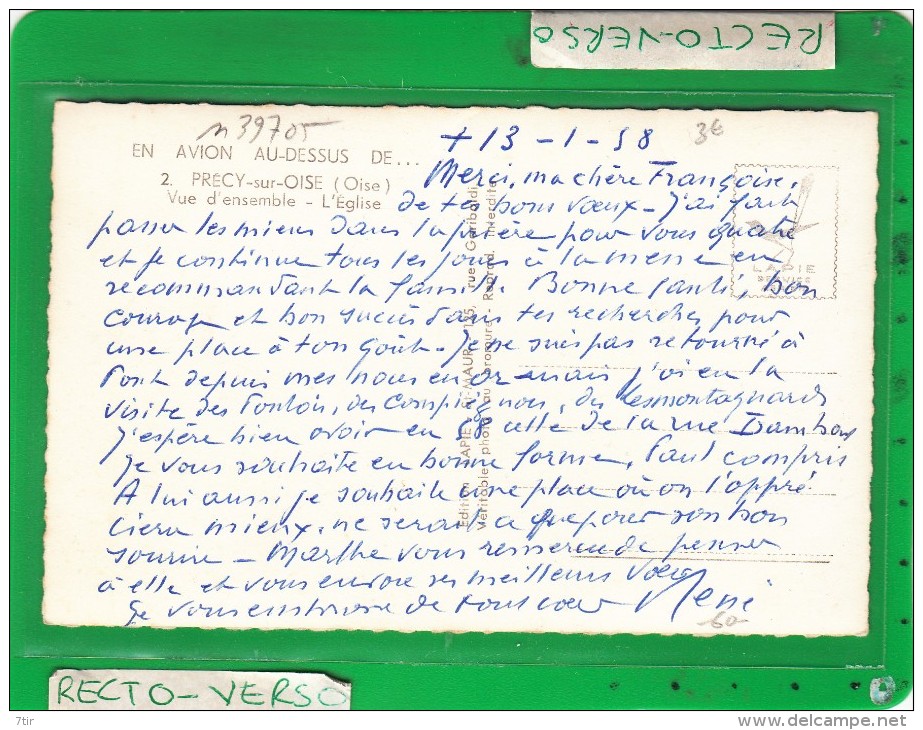 RECTO-VERSO
n 39705
EN AVION AU-DESSUS DE...
2. PRÉCY-sur-OISE (Oise)
Vue d'ensemble - L'Église
+ 13-1-58
3€
Merci, ma chère Françoise,
de tes bons vœux - J'ai fait
passer les miens dans la prière pour vous quatre
et je continue tous les jours à la messe en
recommandant la famille. Bonne santé, bon
courage et bon succès dans tes recherches pour
une place à ton goût - Je ne suis pas retourné à
Pont depuis mes nous en or mais j'ai eu la
visite des des Compiègnois, des Lesmontagnards
J'espère bien avoir en 58 celle de la rue
Je vous souhaite en bonne forme, Paul compris
A lui aussi je souhaite une place où on l'appré
ciera mieux, ne serait ce que pour son bon
sourire - Marthe vous remercie de penser
à elle et vous envoie ses meilleurs vœux
Je vous embrasse de tout cœur René
60
LAPIE
SERVICE
Édition LAPIE, St-MAUR, 165, rue Garibaldi
Véritable photo au bromure. Reprod. Interdite
RECTO-VERSO
7tir
www.delcampe.net